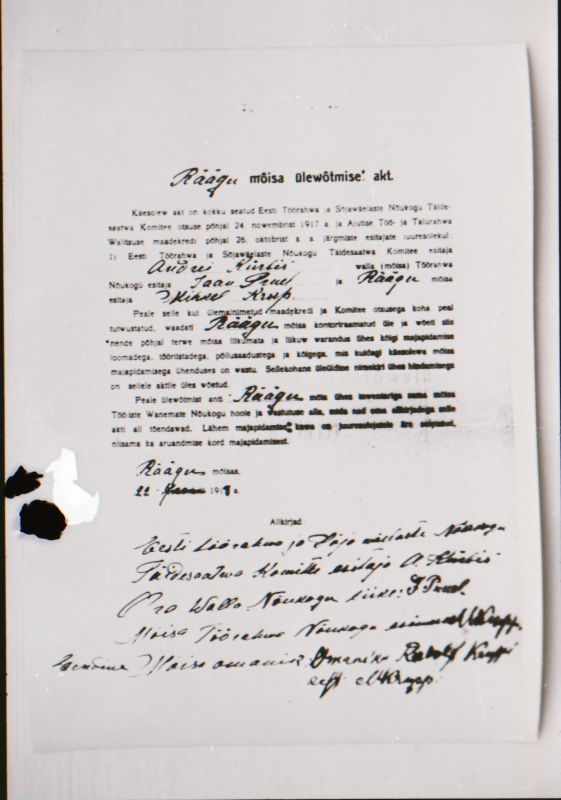 Räägu mõisa ülewõtmise akt.
Käesolew akt on kokku seatud Eesti Töörahwa ja Sõjawäelaste Nõukogu Täide-
saatwa Komitee otsuse põhjal 24. nowembrist 1917 a. ja Ajutise Töö- ja Talurahwa
Walitsuse maadekredi põhjal 26. oktobrist s. a. järgmiste esitajate juuresolekul:
1) Eesti Töörahwa ja Sõjawäelaste Nõukogu Täidesaatwa Komitee esitaja
Andrei Kürbis walla (mõisa) Töörahwa
Nõukogu esitaja Jaan Pruel ja Räägu mõisa
esitaja Mihkel Krupp.
Peale selle kui ülemainimetud maadekredi ja Komitee otsusega koha peal
tutwustatud, waadati Räägu mõisa kontoriraamatud üle ja wõeti siis
nende põhjal terwe mõisa liikumata ja liikuw warandus ühes kõigi majapidamise
loomadega, tööriistadega, põllusaadustega ja kõigega, mis kuidagi käesolewa mõisa
majapidamisega ühenduses on wastu. Sellekohane üleüldine nimekiri ühes hindamisega
on sellele aktile üles wõetud.
Peale ülewõtmist anti Räägu mõis ühes inwentariga sama mõisa
Tööliste Wanemate Nõukogu hoole ja wastutuse alla, mida nad oma allkirjadega selle
akti all tõendawad. Lähem majapidamise kawa on juuresolejatele ära seletatud,
niisama ka aruandmise kord majapidamisest.
Räägu mõisas,
22. 191 a.
Allkirjad:
Eesti töörahwa ja Sõja wäelaste Nõukogu
Täidesaatwa Komitee esitaja A. Kürbis
Wallo Nõukogu liige: J Pruel.
Mõisa Töörahwa Nõukogu esimees MKrupp.
Mõisa omanik Omaniku Rudolf Kruppi
eest MKrupp